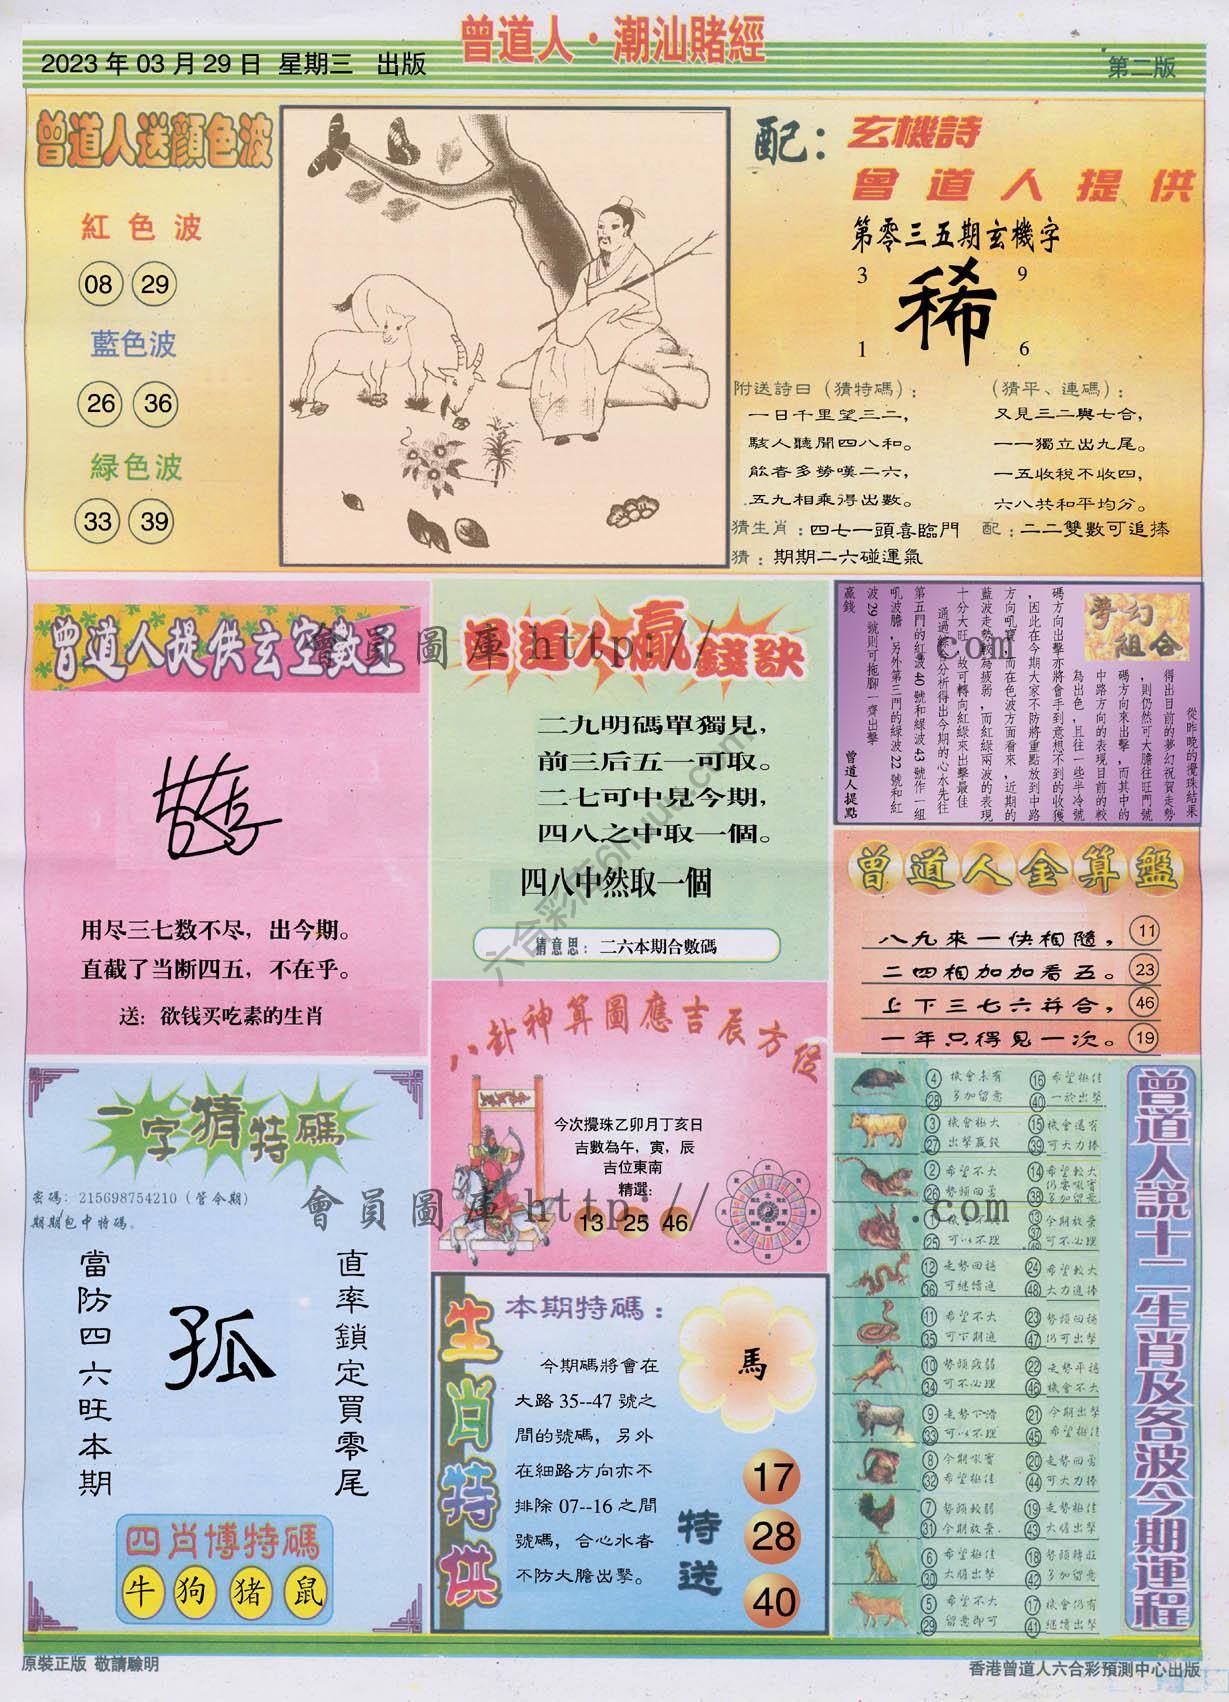 曾道人·潮汕賭經
2023年03月29日 星期三 出版
第二版
曾道人送顏色波
紅色波
08 29
藍色波
26 36
綠色波
33 39
配：玄機詩
曾道人提供
第零三五期玄機字
3 9
稀
1 6
附送詩曰（猜特碼）：
一日千里望三二，
駭人聽聞四八和。
能者多勞嘆二六，
五九相乘得出數。
（猜平、連碼）：
又見三二與七合，
一一獨立出九尾。
一五收稅不收四，
六八共和平均分。
猜生肖：四七一頭喜臨門
配：二二雙數可追捧
猜：期期二六碰運氣
曾道人提供玄空數王
用尽三七数不尽，出今期。
直截了当断四五，不在乎。
送：欲钱买吃素的生肖
曾道人贏錢訣
二九明碼單獨見，
前三后五一可取。
二七可中見今期，
四八之中取一個。
四八中然取一個
猜意思：二六本期合數碼
夢幻組合
從昨晚的攪珠結果
得出目前的夢幻祝賀走勢
，則仍然可大膽往旺門號
碼方向來出擊，而其中的
中路方向的表現目前的較
為出色，且往一些半冷號
碼方向出擊亦將會手到意想不到的收獲
，因此在今期大家不防將重點放到中路
方向吼寶，而在色波方面看來，近期的
藍波走勢較為疲弱，而紅綠兩波的表現
十分大旺，故可轉向紅綠來出擊最佳
通過綜合分析得出今期的心水先往
第五門的紅波40號和綠波43號作一組
吼波膽，另外第三門的綠波22號和紅
波29號則可拖腳一齊出擊
贏錢
曾道人提點
曾道人金算盤
八九來一伏相隨， 11
二四相加加看五。 23
上下三七六并合， 46
一年只得見一次。 19
八卦神算圖應吉辰方位
今次攪珠乙卯月丁亥日
吉數為午，寅，辰
吉位東南
精選：
13 25 46
一字猜特碼
密碼：215698754210（管令期）
期期包中特碼。
直率鎖定買零尾
孤
當防四六旺本期
四肖博特碼
牛 狗 猪 鼠
生肖特供
本期特碼：
今期碼將會在
大路35--47號之
間的號碼，另外
在細路方向亦不
排除07--16之間
號碼，合心水者
不防大膽出擊。
馬
特送
17
28
40
曾道人說十二生肖及各波今期運程
4 機會未有 16 希望極佳
28 多加留意 40 一於出擊
3 機會極大 15 機會還有
27 出擊贏錢 39 可大力捧
2 希望不大 14 希望較大
26 勢頭回勇 38 仍要吸實多加留意
1 機會不大 13 今期放棄
25 可以不理 37 49 可不必理
12 走勢回穩 24 希望較大
36 可繼續追 48 大力追捧
11 希望不大 23 勢頭回穩
35 可下期追 47 仍可出擊
10 勢頭疲弱 22 走勢平穩
34 可不必理 46 機會不大
9 走勢下滑 21 今期出擊
33 可以不理 45 希望極佳
8 今期吸實 20 走勢回勇
32 希望極佳 44 可大力捧
7 勢頭較弱 19 走勢極佳
31 今期放棄 43 大膽出擊
6 希望極佳 18 勢頭轉旺
30 大膽出擊 42 多加留意
5 希望不大 17 機會仍有
29 留意即可 41 繼續出擊
會員圖庫 http:// .com
會員圖庫 http:// .com
原裝正版 敬請驗明
香港曾道人六合彩預測中心出版